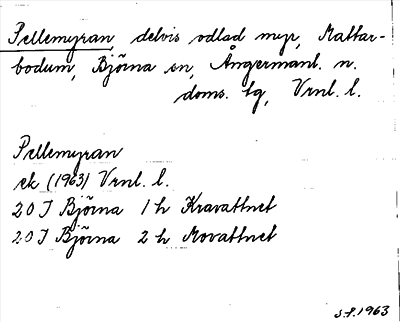 Pellemyran, delvis odlad myr, Mattar-
bodum, Björna sn, Ångermanl. n.
doms. tg, Vrnl. l.
Pellemyran
ek (1963) Vrnl. l.
20 J Björna 1 h Kravattnet
20 J Björna 2 h Movattnet
S.P. 1963